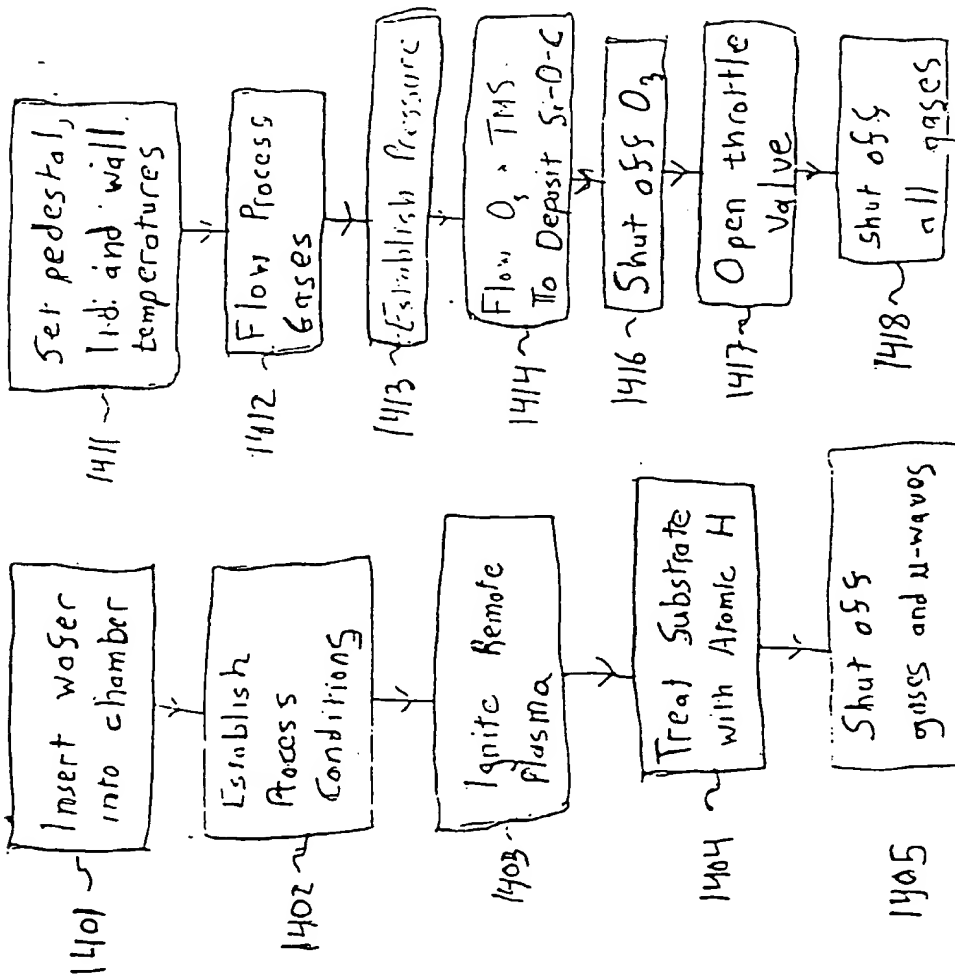 1401
Insert wafer
into chamber
1402
Establish
Process
Conditions
1403
Ignite Remote
Plasma
1404
Treat Substrate
with Atomic H
1405
Shut off
gases and μ-waves
1411
Set pedestal,
lid and wall
temperatures
1412
Flow Process
Gases
1413
Establish Pressure
1414
Flow O3 + TMS
To Deposit Si-O-C
1416
Shut off O3
1417
Open throttle
Valve
1418
Shut off
all gases